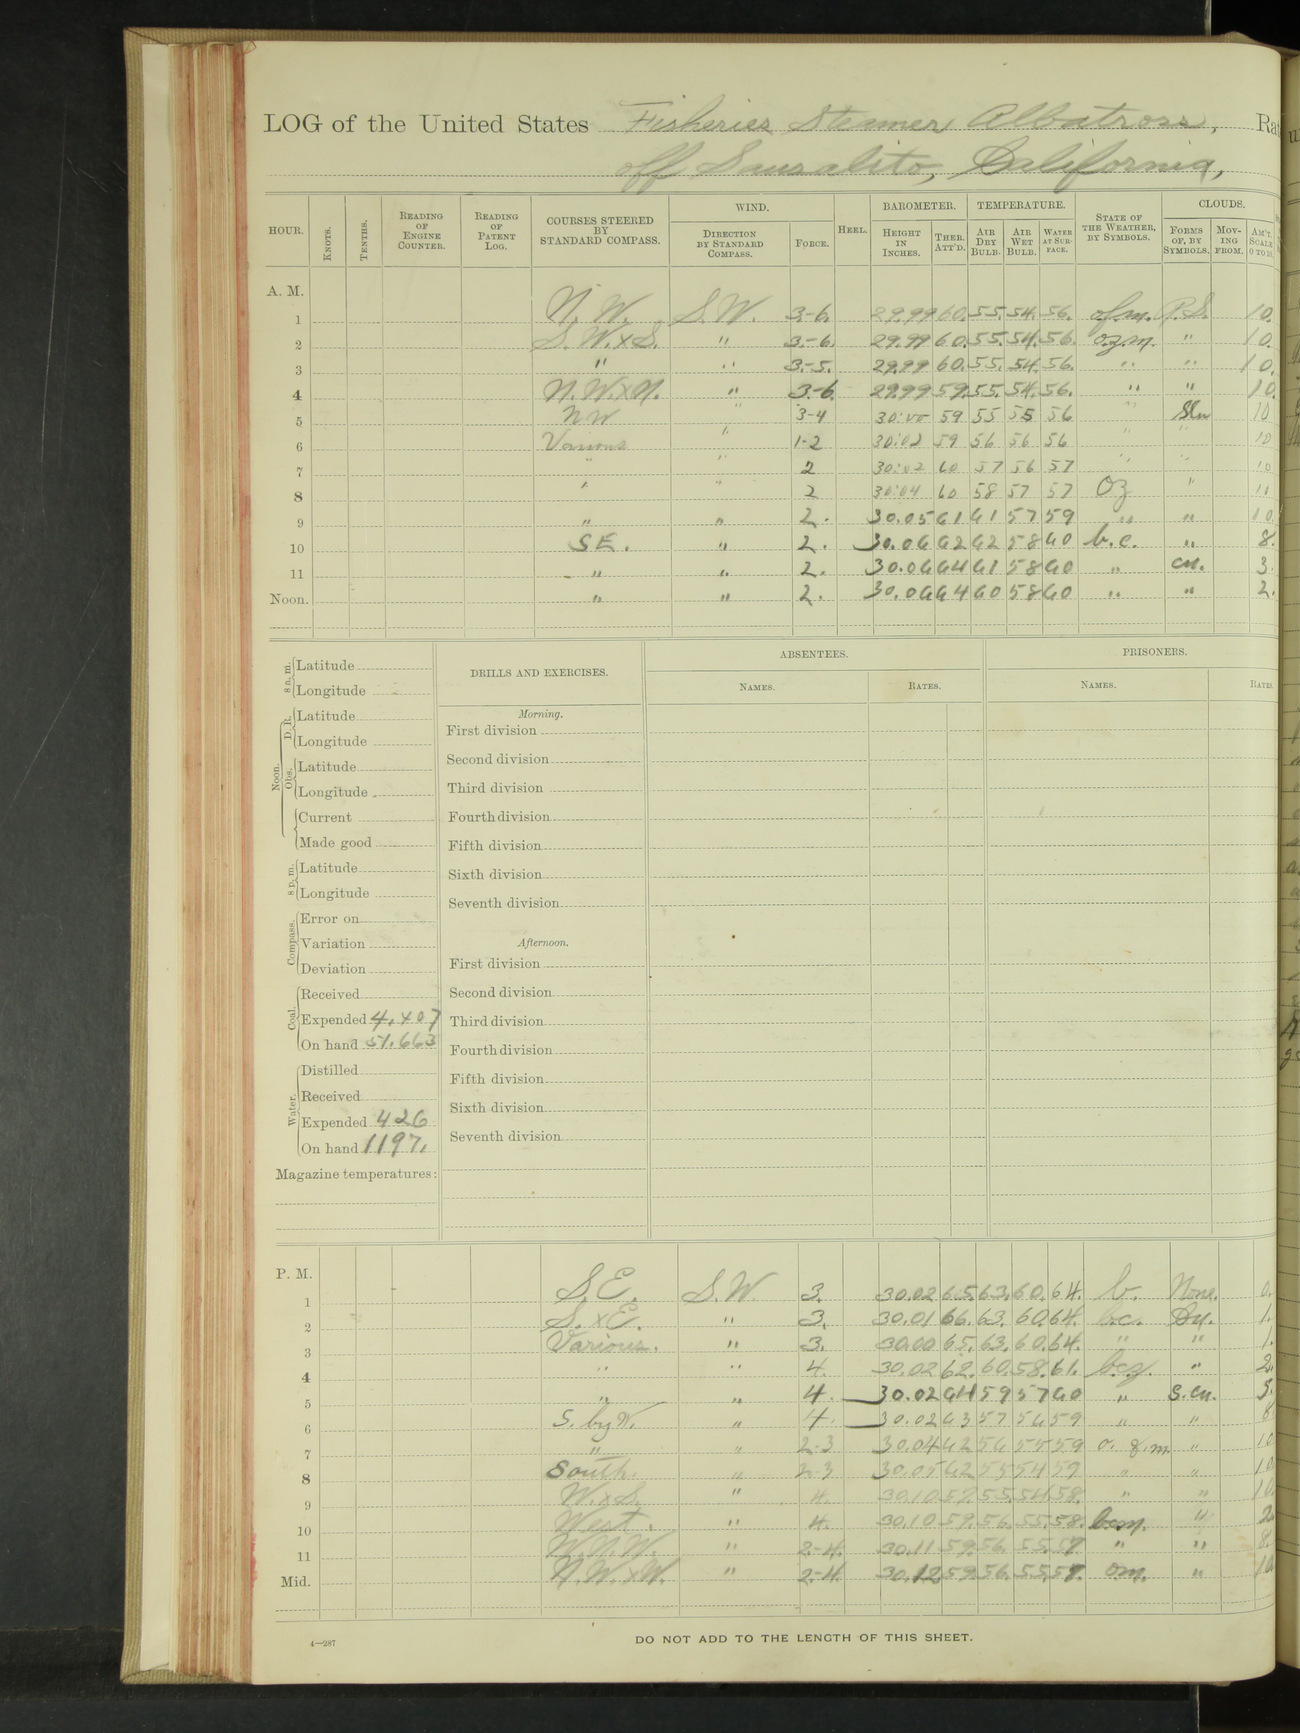 LOG of the United States Fisheries Steamer Albatross, Rat
off Sausalito, California,
HOUR. KNOTS. TENTHS. READING OF ENGINE COUNTER. READING OF PATENT LOG. COURSES STEERED BY STANDARD COMPASS. WIND. DIRECTION BY STANDARD COMPASS. FORCE. HEEL. BAROMETER. HEIGHT IN INCHES. THER. ATT'D. TEMPERATURE. AIR DRY BULB. AIR WET BULB. WATER AT SURFACE. STATE OF THE WEATHER, BY SYMBOLS. CLOUDS. FORMS OF, BY SYMBOLS. MOVING FROM. AM'T. SCALE 0 TO 10.
A. M.
1 N.W. S.W. 3-6. 29.99 60. 55. 54. 56. o.f.m. P.S. 10.
2 S.W.xS. " 3-6. 29.99 60. 55. 54. 56. o.z.m. " 10.
3 " " 3-5. 29.99 60. 55. 54. 56. " " 10.
4 N.W.xN. " 3-6 29.99 59. 55. 54. 56. " " 10.
5 NW " 3-4 30:00 59 55 55 56 " 10
6 Various " 1-2 30:02 59 56 56 56 " " 10
7 " " 2 30:02 60 57 56 57 " " 10
8 " " 2 30:04 60 58 57 57 Oz " 10
9 " " 2. 30.05 61 61 57 59 " " 10.
10 SE. " 2. 30.06 62 62 58 60 b.c. " 8.
11 " " 2. 30.06 64 61 58 60 " cu. 3.
Noon. " " 2. 30.06 64 60 58 60 " " 2.
8 a. m. Latitude
Longitude
Noon. D. R. Latitude
Longitude
Obs. Latitude
Longitude
Current
Made good
8 p. m. Latitude
Longitude
Compass. Error on
Variation
Deviation
Coal. Received
Expended 4,407
On hand 51.663
Water. Distilled
Received
Expended 426
On hand 1197.
Magazine temperatures:
DRILLS AND EXERCISES.
Morning.
First division
Second division
Third division
Fourth division
Fifth division
Sixth division
Seventh division
Afternoon.
First division
Second division
Third division
Fourth division
Fifth division
Sixth division
Seventh division
ABSENTEES.
NAMES. RATES.
PRISONERS.
NAMES. RATES.
P. M.
1 S.E. S.W. 3. 30.02 65. 63. 60. 64. b. None. 0.
2 S.xE. " 3. 30.01 66. 63. 60. 64. b.c. 1.
3 Various. " 3. 30.00 65. 63. 60. 64. " " 1.
4 " " 4. 30.02 62. 60. 58. 61. bcz. " 2.
5 " " 4. 30.02 64 59 57 60 " S.cu. 5.
6 S. by W. " 4. 30.02 63 57 56 59 " " 8
7 " " 2-3 30.04 62 56 55 59 o. z.m. " 10
8 South. " 2-3 30.05 62 55 54 59 " " 10
9 W.xS. " 4. 30.10 57. 55. 54. 58. " " 10.
10 West. " 4. 30.10 59. 56. 55. 58. bcm. " 2.
11 W.N.W. " 2-4. 30.11 59. 56. 55. 57 " " 8.
Mid. N.W.xW. " 2-4. 30.12 59. 56. 55. 57. om. " 10.
4—287
DO NOT ADD TO THE LENGTH OF THIS SHEET.